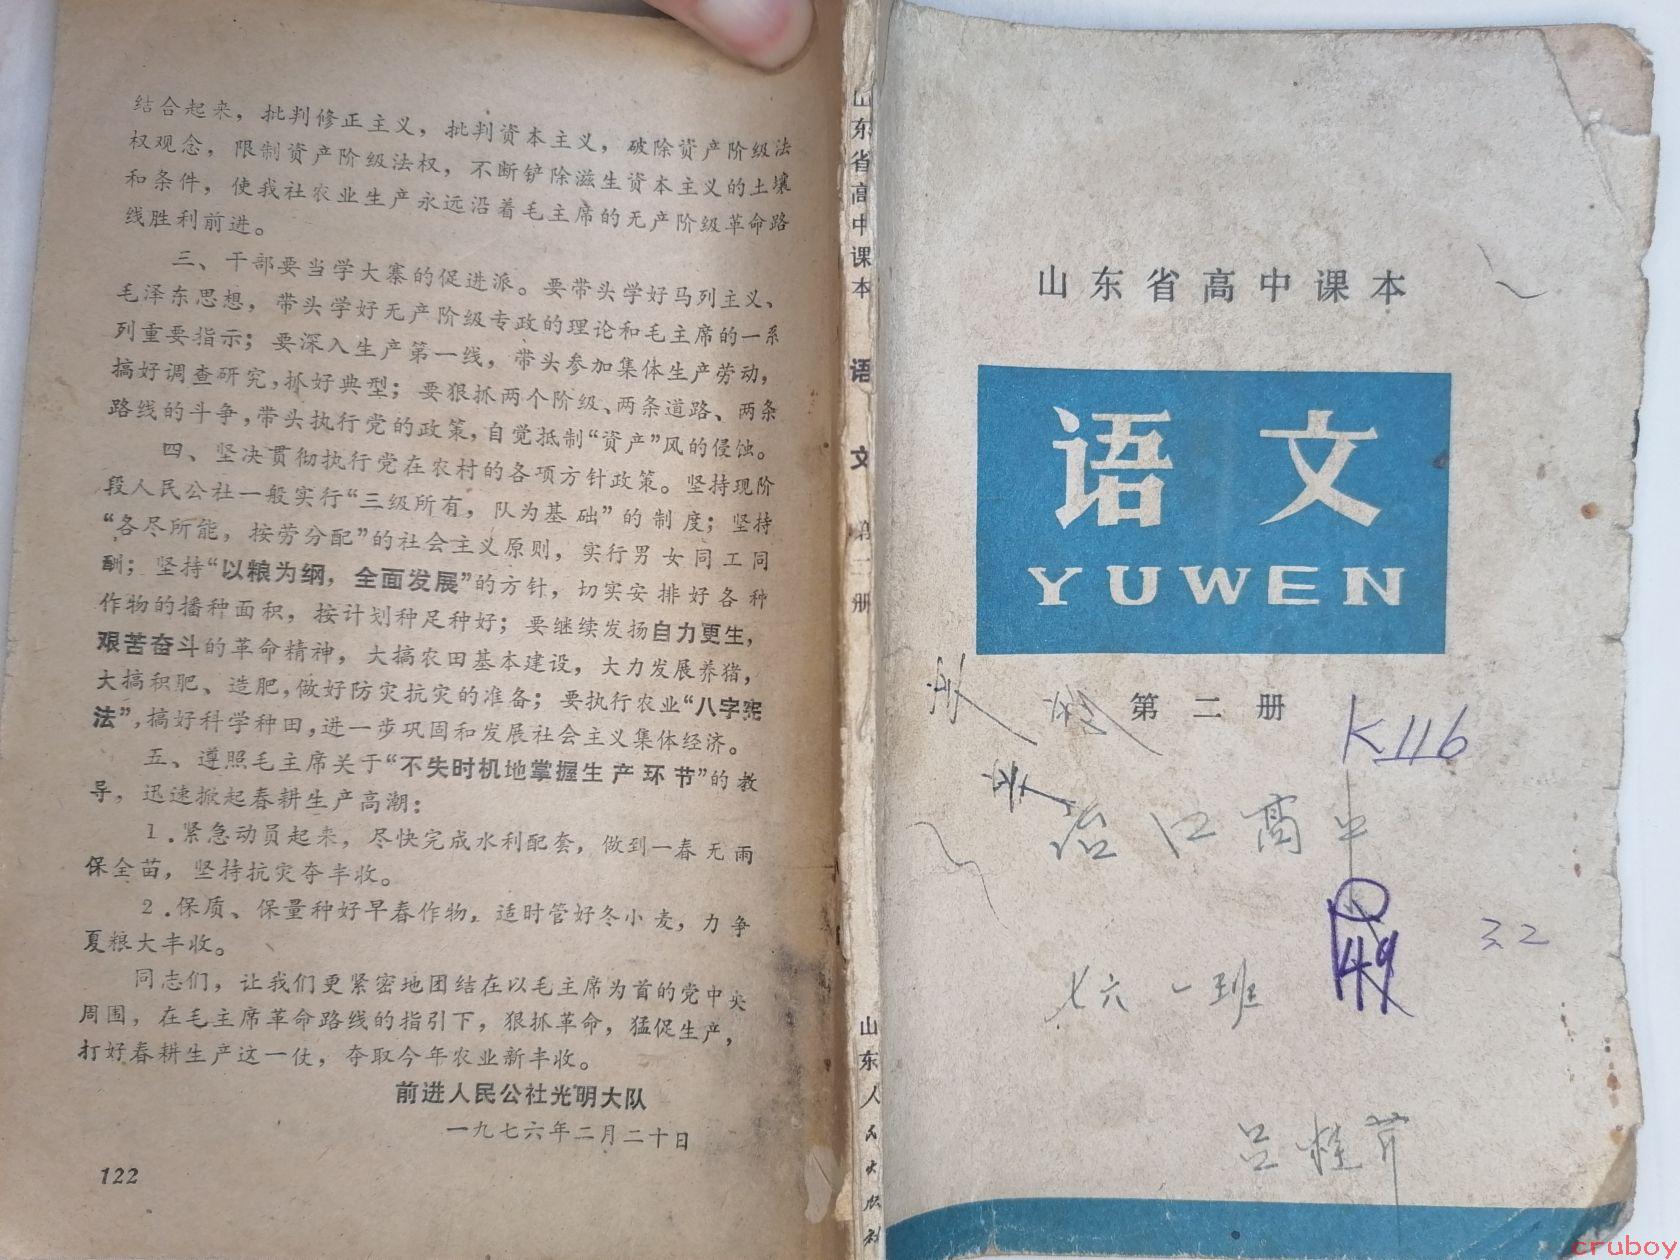 结合起来，批判修正主义，批判资本主义，破除资产阶级法
权观念，限制资产阶级法权，不断铲除滋生资本主义的土壤
和条件，使我社农业生产永远沿着毛主席的无产阶级革命路
线胜利前进。
三、干部要当学大寨的促进派。要带头学好马列主义、
毛泽东思想，带头学好无产阶级专政的理论和毛主席的一系
列重要指示；要深入生产第一线，带头参加集体生产劳动，
搞好调查研究，抓好典型；要狠抓两个阶级、两条道路、两条
路线的斗争，带头执行党的政策，自觉抵制“资产”风的侵蚀。
四、坚决贯彻执行党在农村的各项方针政策。坚持现阶
段人民公社一般实行“三级所有，队为基础”的制度；坚持
“各尽所能，按劳分配”的社会主义原则，实行男女同工同
酬；坚持“以粮为纲，全面发展”的方针，切实安排好各种
作物的播种面积，按计划种足种好；要继续发扬自力更生，
艰苦奋斗的革命精神，大搞农田基本建设，大力发展养猪，
大搞积肥、造肥，做好防灾抗灾的准备；要执行农业“八字宪
法”，搞好科学种田，进一步巩固和发展社会主义集体经济。
五、遵照毛主席关于“不失时机地掌握生产环节”的教
导，迅速掀起春耕生产高潮：
1．紧急动员起来，尽快完成水利配套，做到一春无雨
保全苗，坚持抗灾夺丰收。
2．保质、保量种好早春作物，适时管好冬小麦，力争
夏粮大丰收。
同志们，让我们更紧密地团结在以毛主席为首的党中央
周围，在毛主席革命路线的指引下，狠抓革命，猛促生产，
打好春耕生产这一仗，夺取今年农业新丰收。
前进人民公社光明大队
一九七六年二月二十日
122
山东省高中课本 语文 第二册 山东人民出版社
山东省高中课本
语文
YUWEN
第二册
K116
冶江高中
49
32
七六一班
吕桂芹
cruboy